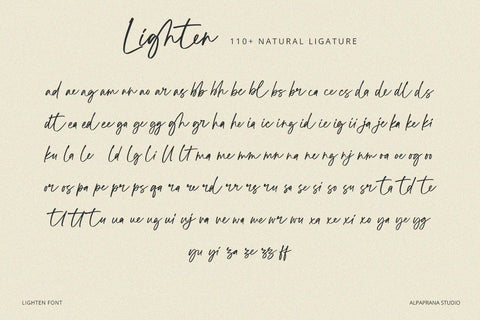 Lighten 110+ NATURAL LIGATURE
ad ae ag am nn ao ar as bb bh be bl bs br ca ce cs da de dl ds
dt ea ed ee ga ge gg gh gr ha he ia ic ing id ie ig ii ja je ka ke ki
ku la le ld lg li ll lt ma me mm mn na ne ng nj nm oa oe og oo
or os pa pe pr ps qa ra re rd rr rs ru sa se si so su sr ta td te
tl tt tu ua ue ug ui uj va ve wa we wr wu xa xe xi xo ya ye yg
yu yi za ze zz ff
LIGHTEN FONT
ALPAPRANA STUDIO